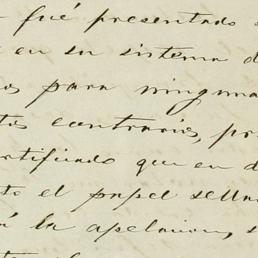 fué presentado
en su sistema d
os para ninguna
tos contrarios, pr
ertificado que en d
to el papel sellad
la apelacion, s